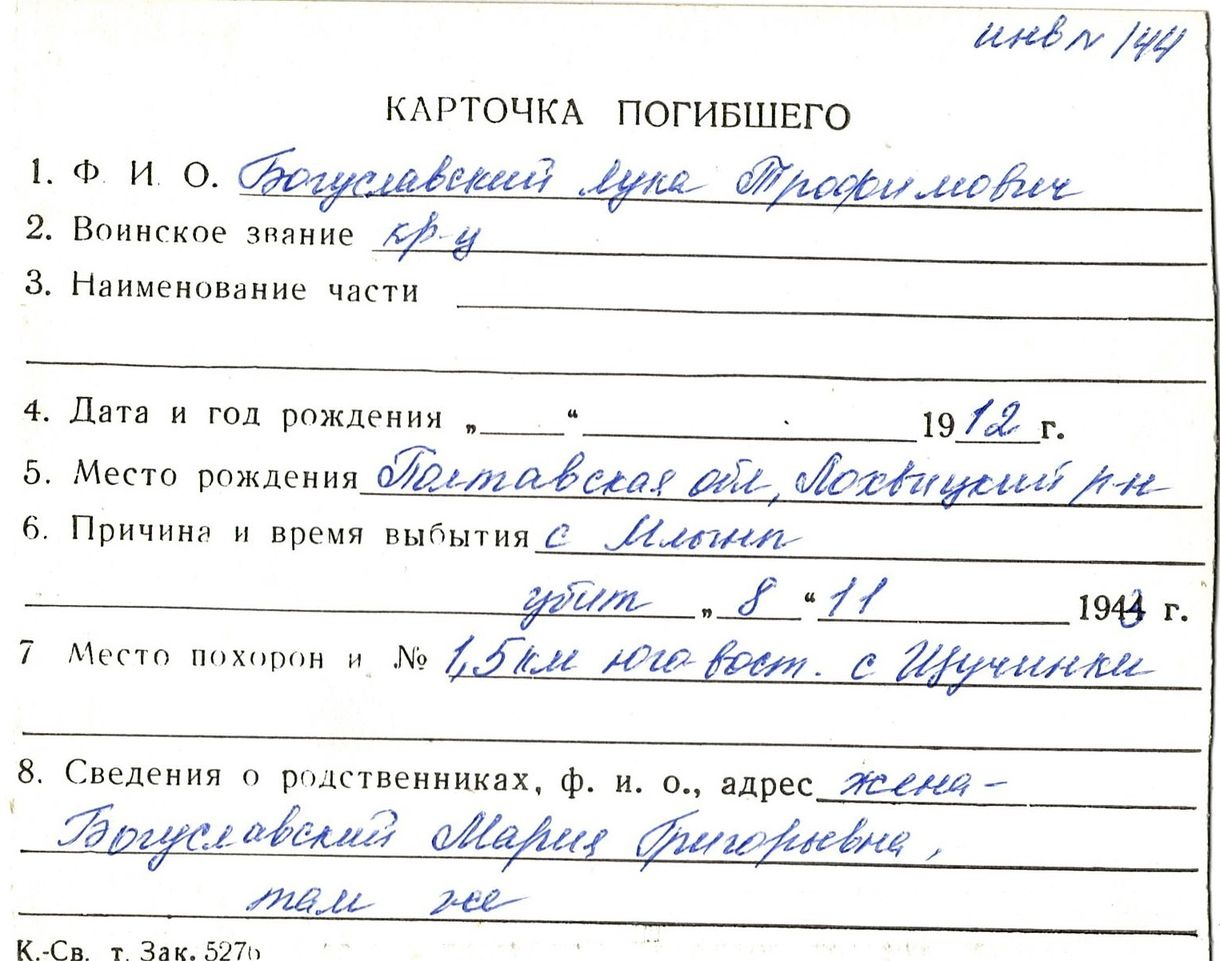 инв N 144
КАРТОЧКА ПОГИБШЕГО
1. Ф И О. Богуславский Лука Трофимович
2. Воинское звание кр-ц
3. Наименование части
4. Дата и год рождения „ “ 1912 г.
5. Место рождения Полтавская обл, Лохвицкий р-н
6. Причина и время выбытия с Млыны
убит „ 8 “ 11 1943 г.
7 Место похорон и № 1,5 км юго вост. с Щучинки
8. Сведения о родственниках, ф. и. о., адрес жена-
Богуславский Мария Григорьевна,
там же
К.-Св. т. Зак. 5276